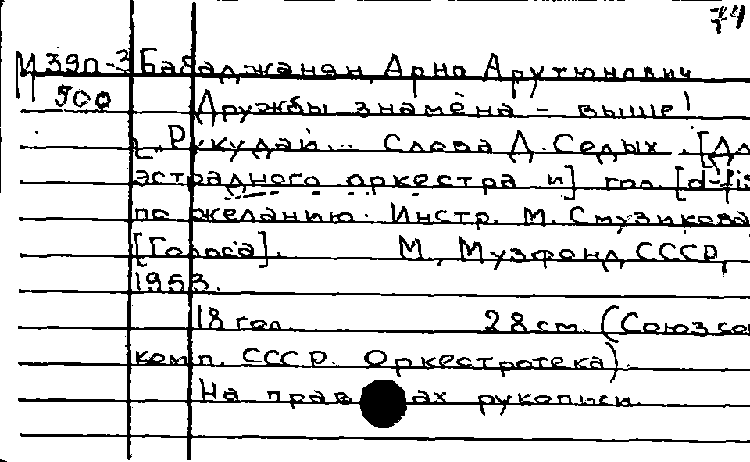 74
М 39п-3 Бабаджанян, Арно Арутюнович
900 Дружбы знамёна - выше!
["Рукудай... Слова Д. Седых. [Для
эстрадного оркестра и] гол. [d-fis]
по желанию. Инстр. М. Смузикова
[Голоса]. М., Музфонд СССР,
1953.
18 гол. 28 см. (Союз сов.
комп. СССР. Оркестротека).
На правах рукописи.